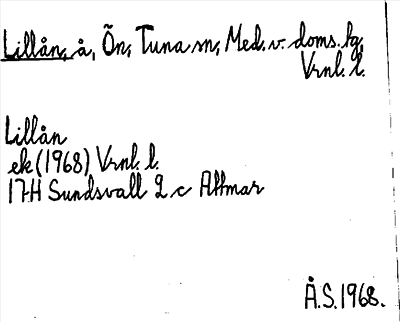 Lillån, å, Ön, Tuna sn, Med. v. doms. hg,
Vrnl. l.
Lillån
ek (1968) Vrnl. l.
17H Sundsvall 2 c Attmar
Å.S. 1968.